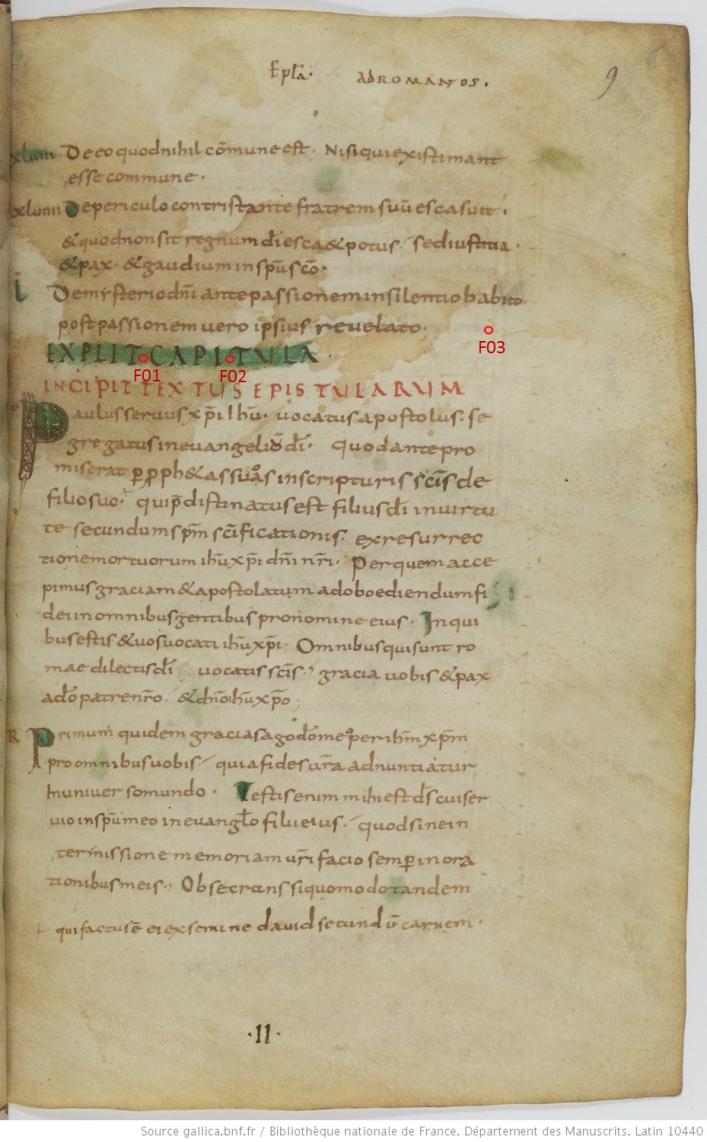 Epl̃a· AD ROMANOS.
9
xlviii De eo quod nihil cõmune est · Nisi qui existimant
esse commune ·
xlviiii De periculo contristante fratrem suũ esca sua ·
& quod non sit regnum dĩ esca & potus · sed iustitia ·
& pax · & gaudium in sp̃u sc̃o ·
l De mysterio dñi ante passionem in silentio habito
post passionem vero ipsius revelato ·
EXPLIT CAPITULA
INCIPIT TEXTUS EPISTULARUM
Paulus servus xp̃i ihũ · vocatus apostolus · se
gregatus in evangeliũ dĩ · quod ante pro
miserat p̱ p̱ph&as suos in scripturis sc̃is de
filio suo · qui p̱distinatus est filius dĩ in virtu
te secundum sp̃m sc̃ificationis · ex resurrec
tione mortuorum ihũ xp̃i dñi nr̃i · Per quem acce
pimus graciam & apostolatum ad oboediendum fi
dei in omnibus gentibus pro nomine eius · In qui
bus estis & vos vocati ihũ xp̃i · Omnibus qui sunt ro
mae dilectis dĩ vocatis sc̃is · gracia vobis & pax
a dõ patre nr̃o · & dño ihũ xp̃o ;
R Primum quidem gracias ago dõ meo per ihm̃ xp̃m
pro omnibus vobis · quia fides vr̃a adnuntiatur
In universo mundo · Testis enim mihi est ds̃ cui ser
vio in sp̃u meo in evangl̃o filii eius · quod sine in
termissione memoriam vr̃i facio semp̱ in ora
tionibus meis · Obsecrans si quomodo tandem
qui factus ẽ ei ex semine david secundũ carnem ·
· II ·
F01
F02
F03
Source gallica.bnf.fr / Bibliothèque nationale de France. Département des Manuscrits. Latin 10440